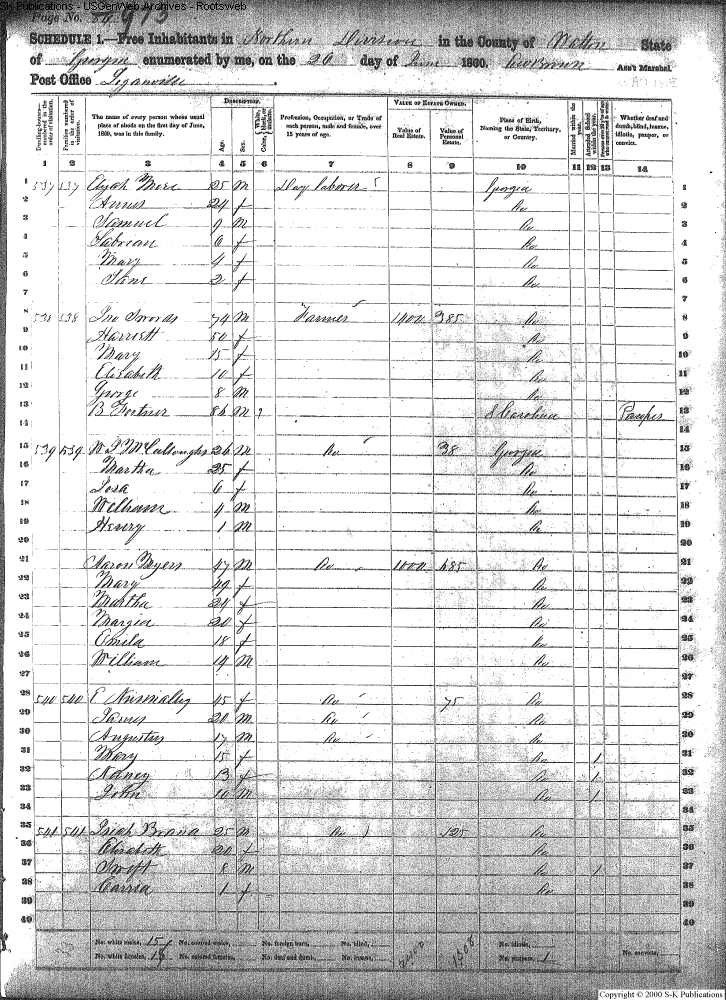 S-K Publications - USGenWeb Archives - Rootsweb
Page No. 86 913
SCHEDULE 1.—Free Inhabitants in Northern Division in the County of Walton State
of Georgia enumerated by me, on the 26 day of June 1860. Ass't Marshal.
Post Office
Dwelling-houses—numbered in the order of visitation.
Families numbered in the order of visitation.
The name of every person whose usual place of abode on the first day of June, 1860, was in this family.
DESCRIPTION.
Age.
Sex.
Color, White, black, or mulatto.
Profession, Occupation, or Trade of each person, male and female, over 15 years of age.
VALUE OF ESTATE OWNED.
Value of Real Estate.
Value of Personal Estate.
Place of Birth, Naming the State, Territory, or Country.
Married within the year.
Attended School within the year.
Whether deaf and dumb, blind, insane, idiotic, pauper, or convict.
1 2 3 4 5 6 7 8 9 10 11 12 13 14
1 537 537 Elijah 25 M Day laborer Georgia 1
2 24 f Do 2
3 Samuel 9 M Do 3
4 6 f Do 4
5 Mary 4 f Do 5
6 Jane 2 f Do 6
7 7
8 538 538 Jno Swords 74 M Farmer 1400 385 Do 8
9 Harriett 50 f Do 9
10 Mary 15 f Do 10
11 Elizabeth 10 f Do 11
12 George 8 M Do 12
13 B Fortner 86 M S Carolina Pauper 13
14 14
15 539 539 26 M Do 38 Georgia 15
16 Martha 25 f Do 16
17 6 f Do 17
18 William 4 M Do 18
19 Henry 1 M Do 19
20 20
21 Aaron Byers 47 M Do 1000 685 Do 21
22 Mary 49 f Do 22
23 Martha 24 f Do 23
24 20 f Do 24
25 18 f Do 25
26 William 14 M Do 26
27 27
28 540 540 E 45 f Do 75 Do 28
29 James 20 M Do Do 29
30 Augustus 17 M Do Do 30
31 Mary 15 f Do 1 31
32 13 f Do 1 32
33 John 10 M Do 1 33
34 34
35 541 541 25 M Do 125 Do 35
36 Elizabeth 20 f Do 36
37 Swift 8 M Do 1 37
38 1 f Do 38
39 39
40 40
No. white males, 15 No. colored males, No. foreign born, No. blind, 2400 1308 No. idiotic,
No. white females, No. colored females, No. deaf and dumb, No. insane, No. paupers, 1 No. convicts,
Copyright © 2000 S-K Publications